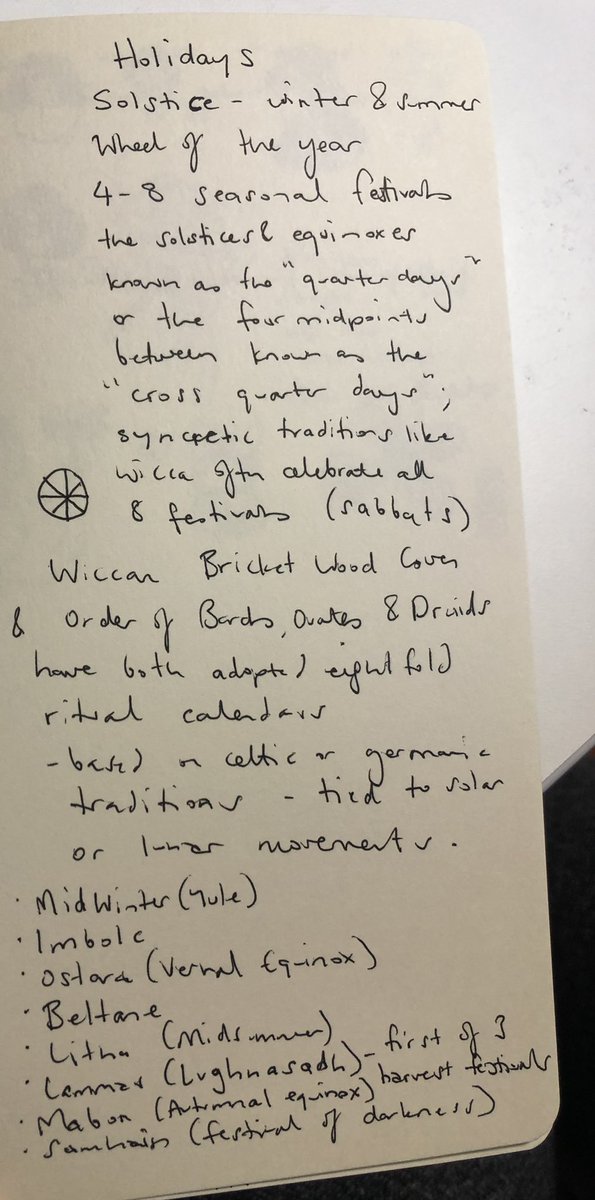 Holidays
Solstice - winter & summer
Wheel of the year
4-8 seasonal festivals
the solstices & equinoxes
known as the "quarter days"
or the four midpoints
between known as the
"cross quarter days";
syncretic traditions like
Wicca often celebrate all
8 festivals (sabbats)
Wiccan Bricket Wood Coven
& Order of Bards, Ovates & Druids
have both adopted eightfold
ritual calendars
- based on celtic or germanic
traditions - tied to solar
or lunar movements.
· MidWinter (Yule)
· Imbolc
· Ostara (Vernal Equinox)
· Beltane
· Litha (Midsummer)
· Lammas (Lughnasadh) - first of 3 harvest festivals
· Mabon (Autumnal equinox)
· Samhain (festival of darkness)